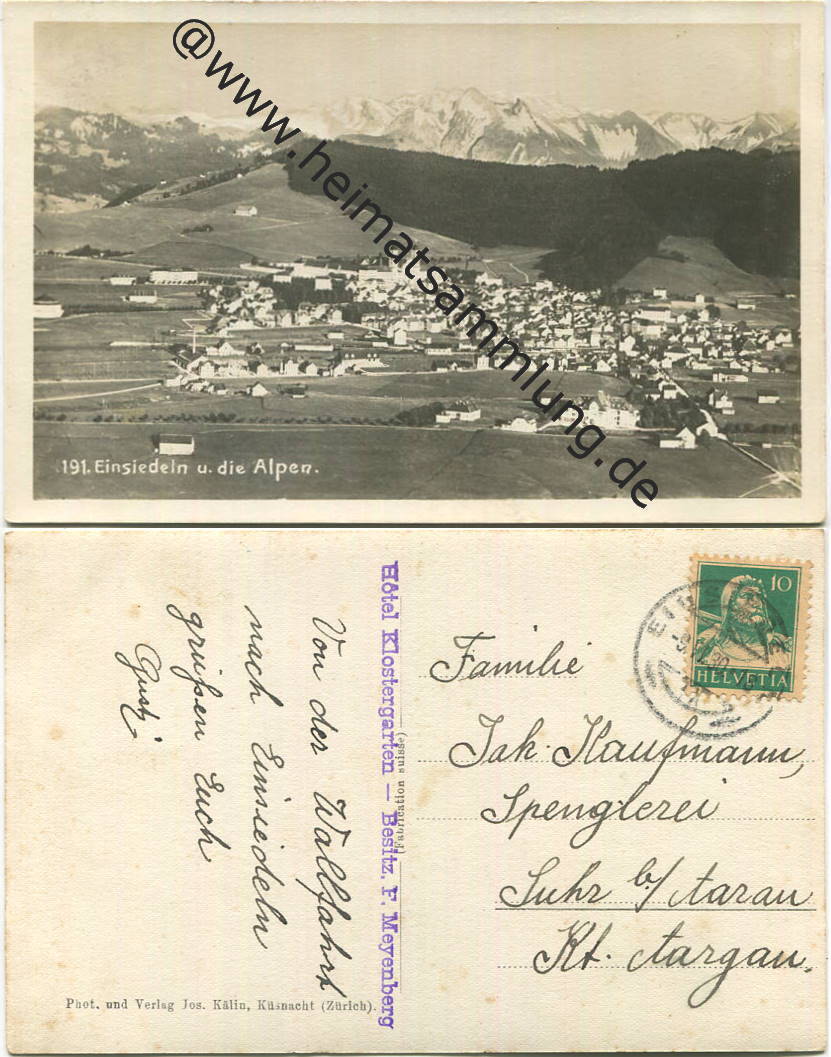 @www.heimatsammlung.de
191. Einsiedeln u. die Alpen.
Von der Wallfahrt
nach Einsiedeln
grüßen Euch
Gusti
Hôtel Klostergarten — Besitz. F. Meyenberg
(Fabrication suisse)
Phot. und Verlag Jos. Kälin, Küsnacht (Zürich).
10
HELVETIA
Familie
Jak. Kaufmann,
Spenglerei
Suhr b/ Aarau
Kt. Aargau.